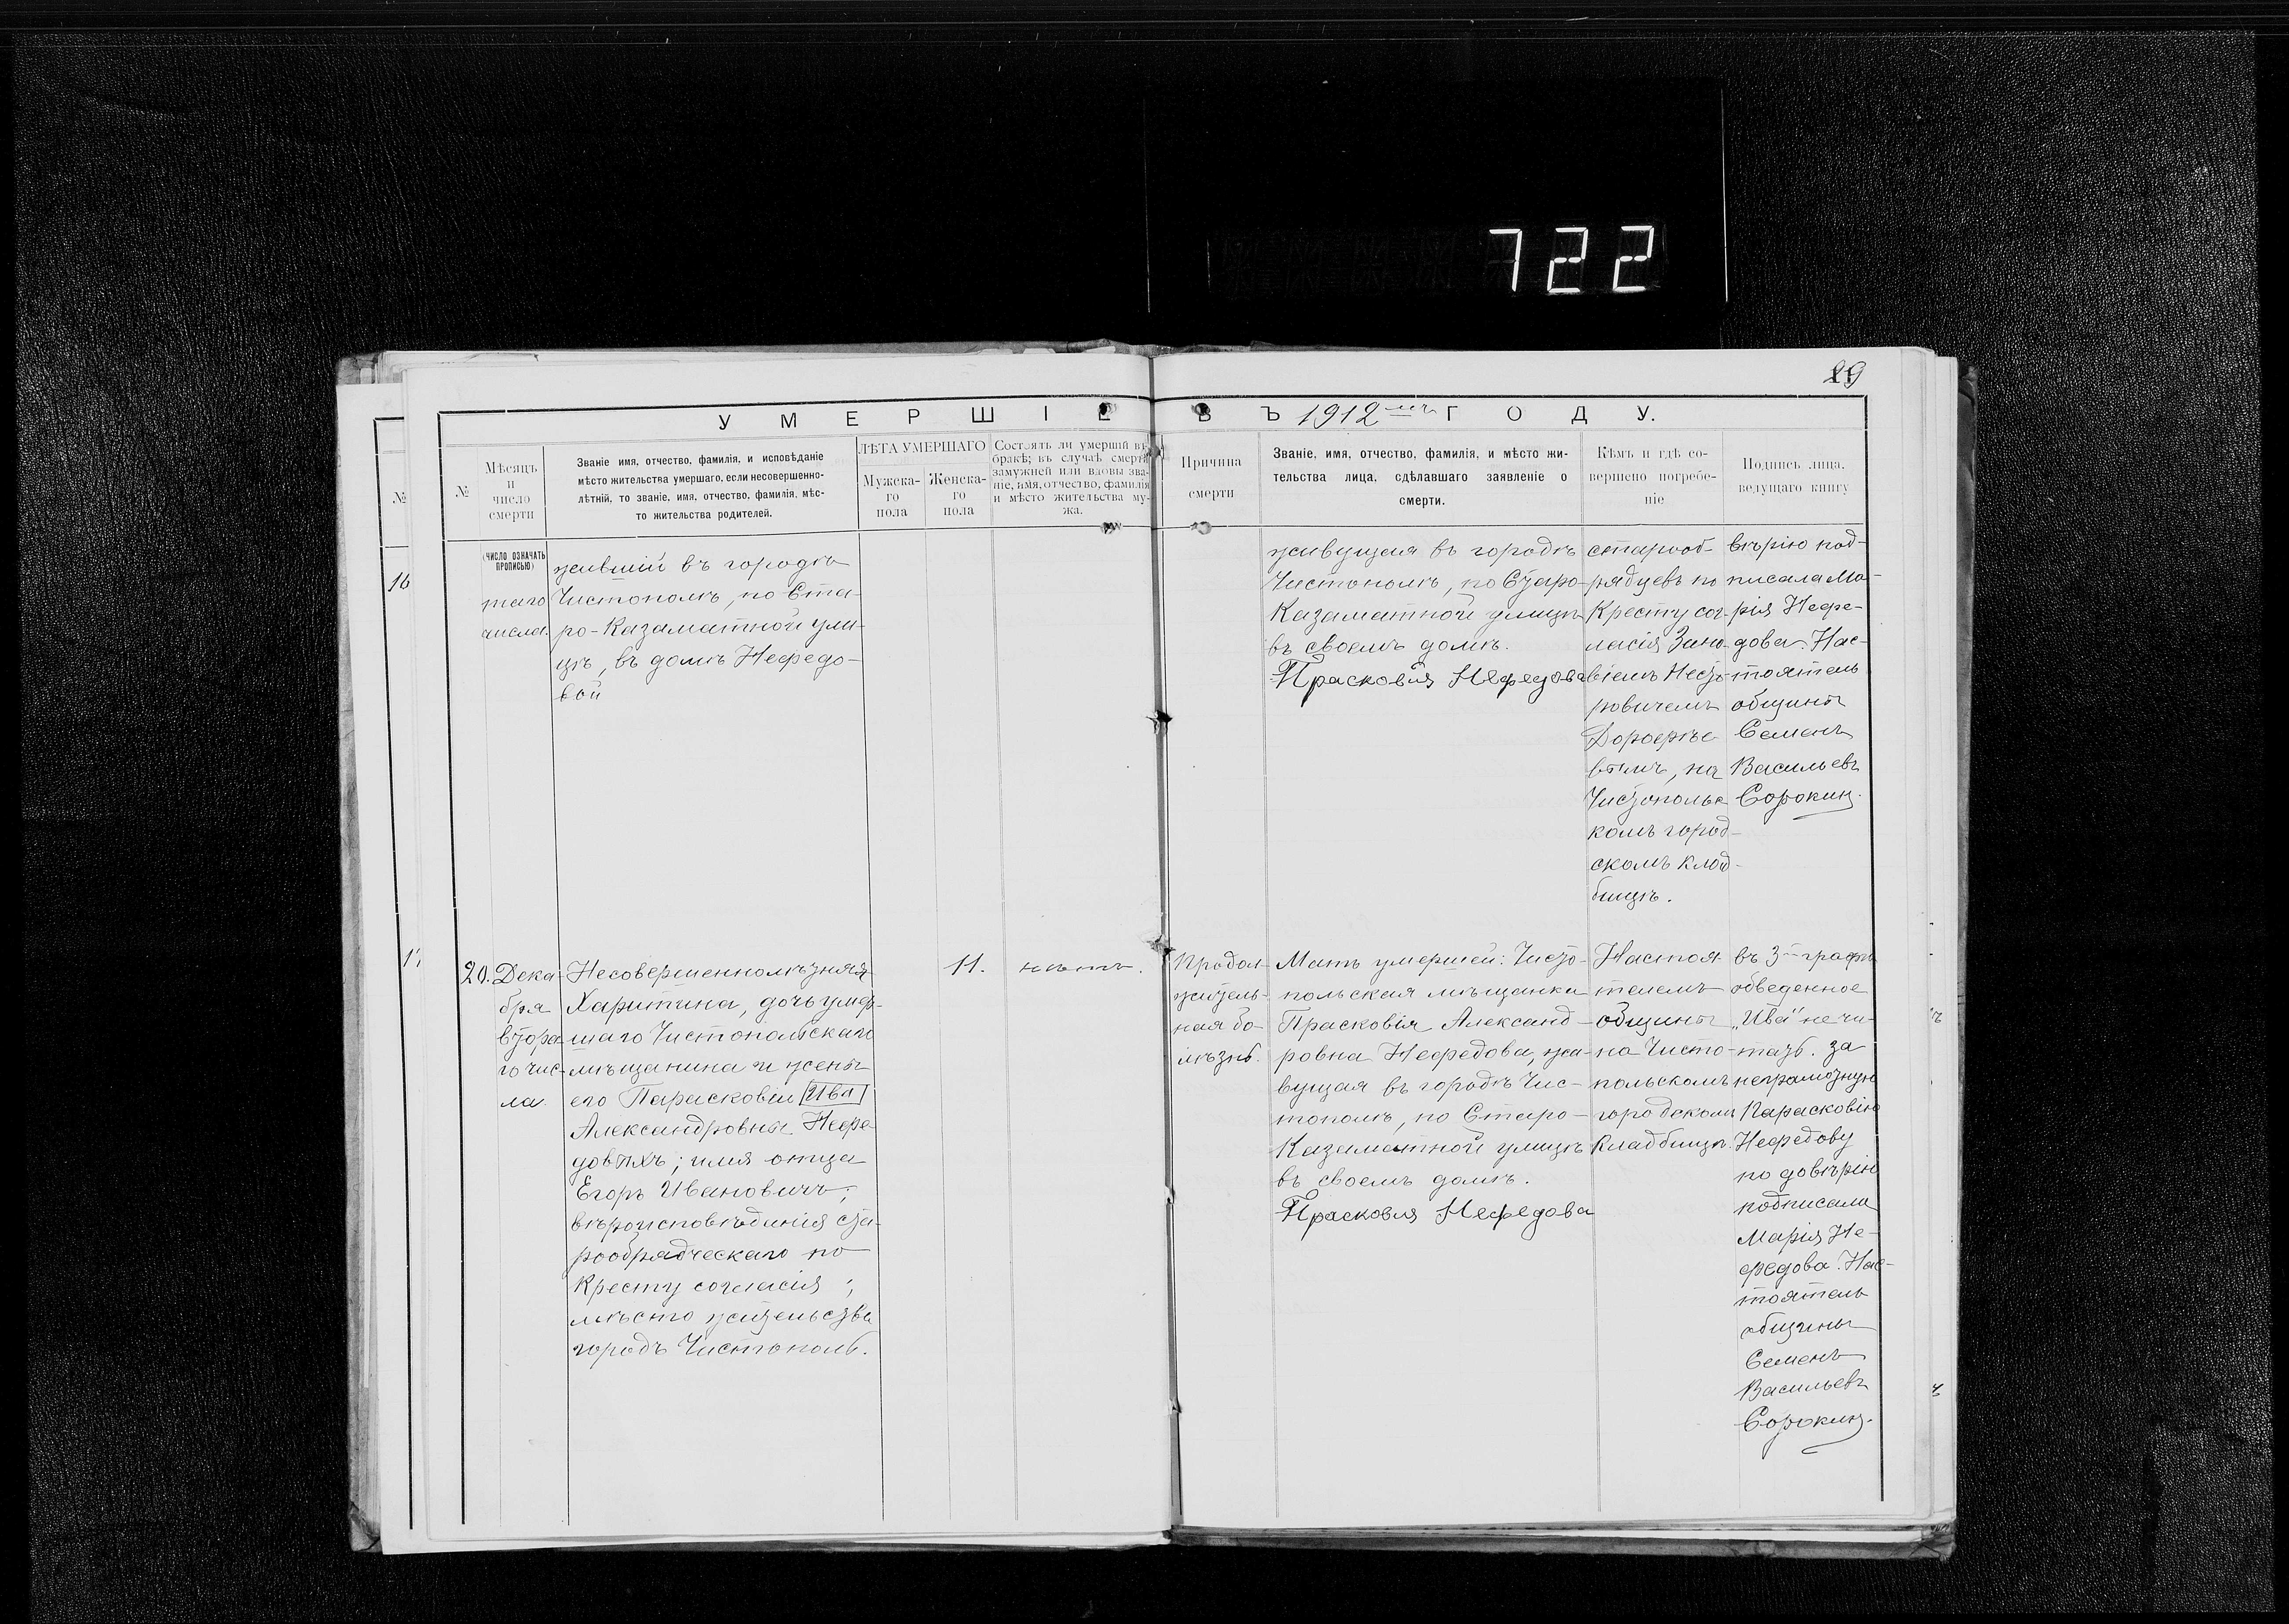 722
29
УМЕРШІЕ ВЪ 1912мъ ГОДУ.
№
№
Мѣсяцъ
и
число
смерти
Званіе имя, отчество, фамилія, и исповѣданіе
мѣсто жительства умершаго, если несовершенно-
лѣтній, то званіе, имя, отчество, фамилія, мѣс-
то жительства родителей.
ЛѢТА УМЕРШАГО
Мужска-
го
пола
Женска-
го
пола
Состоялъ ли умершій въ
бракѣ; въ случаѣ смерти
замужней или вдовы зва-
ніе, имя, отчество, фамилія
и мѣсто жительства му-
жа.
Причина
смерти
Званіе, имя, отчество, фамилія, и мѣсто жи-
тельства лица, сдѣлавшаго заявленіе о
смерти.
Кѣмъ и гдѣ со-
вершено погребе-
ніе
Подпись лица,
ведущаго книгу
16
(ЧИСЛО ОЗНАЧАТЬ
ПРОПИСЬЮ)
таго
числа.
жившій въ городѣ
Чистополѣ, по Ста-
ро-Казаматной ули-
цѣ, въ домѣ Нефедо-
вой
живущая въ городѣ
Чистополѣ, по Старо-
Казаматной улицѣ
въ своемъ домѣ.
Прасковія Нефедова
старооб-
рядцевъ по
Кресту сог-
ласія Зино-
віемъ Несто-
ровичемъ
Дорофѣе
вымъ, на
Чистопольс
комъ город-
скомъ клад-
бищѣ.
вѣрію под-
писала Ма-
рія Нефе-
дова. Нас-
тоятель
общины
Семенъ
Васильевъ
Сорокинъ.
17
20.
Дека-
бря
втора-
го чис-
ла.
Несовершеннолѣтняя
Харитина, дочь умер-
шаго Чистопольскаго
мѣщанина и жены
его Парасковіи Ива
Александровны Нефе
довыхъ; имя отца
Егоръ Ивановичъ;
вѣроисповѣданія ста-
рообрядческаго по
Кресту согласія;
мѣсто жительства
городъ Чистополь.
11.
нѣтъ.
Продол-
житель-
ная бо-
лѣзнь.
Мать умершей: Чисто-
польская мѣщанка
Прасковія Александ-
ровна Нефедова, жи-
вущая въ городѣ Чис-
тополѣ, по Старо-
Казаматной улицѣ
въ своемъ домѣ.
Прасковія Нефедова
Настоя-
телемъ
общины
на Чисто-
польскомъ
городскомъ
Кладбищѣ.
въ 3й графѣ
обведенное
„Ива" не чи-
тать. за
неграмотную
Парасковію
Нефедову
по довѣрію
подписала
Марія Не-
федова. Нас-
тоятель
общины
Семенъ
Васильевъ
Сорокинъ.